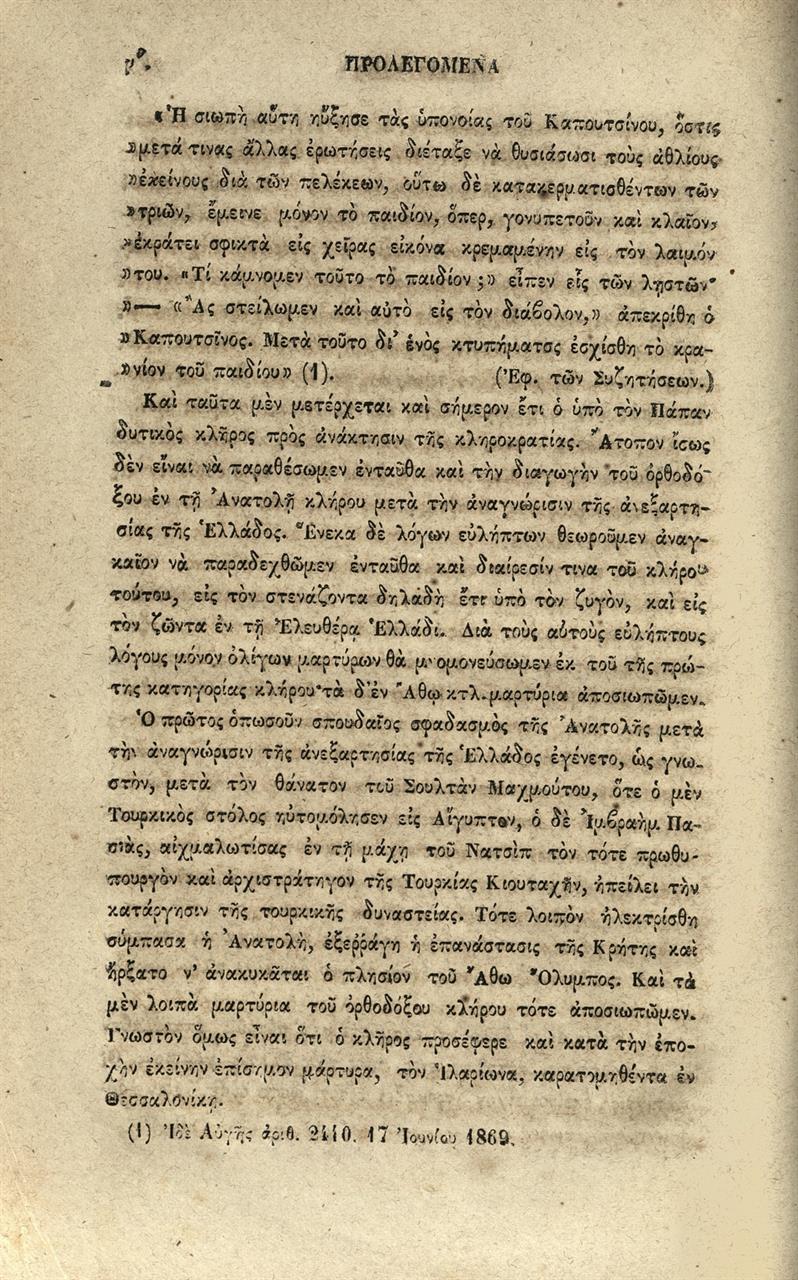 ΠΡΟΛΕΓΟΜΕΝΑ
«Ἡ σιωπὴ αὕτη ηὔξησε τὰς ὑπονοίας τοῦ Καπουτσίνου, ὅστις
»μετά τινας ἄλλας ἐρωτήσεις διέταξε νὰ θυσιάσωσι τοὺς ἀθλίους
»ἐκείνους διὰ τῶν πελέκεων, οὕτω δὲ κατακερματισθέντων τῶν
»τριῶν, ἔμεινε μόνον τὸ παιδίον, ὅπερ, γονυπετοῦν καὶ κλαῖον,
»ἐκράτει σφικτὰ εἰς χεῖρας εἰκόνα κρεμαμένην εἰς τὸν λαιμόν
»του. «Τί κάμνομεν τοῦτο τὸ παιδίον ;» εἶπεν εἷς τῶν λῃστῶν·
»— «Ἂς στείλωμεν καὶ αὐτὸ εἰς τὸν διάβολον,» ἀπεκρίθη ὁ
»Καπουτσῖνος. Μετὰ τοῦτο δι' ἑνὸς κτυπήματος ἐσχίσθη τὸ κρα-
»νίον τοῦ παιδίου» (1). (Ἐφ. τῶν Συζητήσεων.)
Καὶ ταῦτα μὲν μετέρχεται καὶ σήμερον ἔτι ὁ ὑπὸ τὸν Πάπαν
δυτικὸς κλῆρος πρὸς ἀνάκτησιν τῆς κληροκρατίας. Ἄτοπον ἴσως
δὲν εἶναι νὰ παραθέσωμεν ἐνταῦθα καὶ τὴν διαγωγὴν τοῦ ὀρθοδό-
ξου ἐν τῇ Ἀνατολῇ κλήρου μετὰ τὴν ἀναγνώρισιν τῆς ἀνεξαρτη-
σίας τῆς Ἑλλάδος. Ἕνεκα δὲ λόγων εὐλήπτων θεωροῦμεν ἀναγ-
καῖον νὰ παραδεχθῶμεν ἐνταῦθα καὶ διαίρεσίν τινα τοῦ κλήρου
τούτου, εἰς τὸν στενάζοντα δηλαδὴ ἔτι ὑπὸ τὸν ζυγὸν, καὶ εἰς
τὸν ζῶντα ἐν τῇ Ἐλευθέρᾳ Ἑλλάδι. Διὰ τοὺς αὐτοὺς εὐλήπτους
λόγους μόνον ὀλίγων μαρτύρων θὰ μνομονεύσωμεν ἐκ τοῦ τῆς πρώ-
της κατηγορίας κλήρου· τὰ δ' ἐν Ἄθῳ κτλ. μαρτύρια ἀποσιωπῶμεν.
Ὁ πρῶτος ὁπωσοῦν σπουδαῖος σφαδασμὸς τῆς Ἀνατολῆς μετὰ
τὴν ἀναγνώρισιν τῆς ἀνεξαρτησίας τῆς Ἑλλάδος ἐγένετο, ὡς γνω-
στὸν, μετὰ τὸν θάνατον τοῦ Σουλτὰν Μαχμούτου, ὅτε ὁ μὲν
Τουρκικὸς στόλος ηὐτομόλησεν εἰς Αἴγυπτον, ὁ δὲ Ἰμβραὴμ Πα-
σιὰς, αἰχμαλωτίσας ἐν τῇ μάχῃ τοῦ Νατσὶπ τὸν τότε πρωθυ-
πουργὸν καὶ ἀρχιστράτηγον τῆς Τουρκίας Κιουταχῆν, ἠπείλει τὴν
κατάργησιν τῆς τουρκικῆς δυναστείας. Τότε λοιπὸν ἠλεκτρίσθη
σύμπασα ἡ Ἀνατολὴ, ἐξεῤῥάγη ἡ ἐπανάστασις τῆς Κρήτης καὶ
ἤρξατο ν' ἀνακυκᾶται ὁ πλησίον τοῦ Ἄθω Ὄλυμπος. Καὶ τὰ
μὲν λοιπὰ μαρτύρια τοῦ ὀρθοδόξου κλήρου τότε ἀποσιωπῶμεν.
Γνωστὸν ὅμως εἶναι ὅτι ὁ κλῆρος προσέφερε καὶ κατὰ τὴν ἐπο-
χὴν ἐκείνην ἐπίσημον μάρτυρα, τὸν Ἱλαρίωνα, καρατομηθέντα ἐν
Θεσσαλονίκῃ.
(1) Ἰδὲ Αὐγῆς ἀριθ. 2440. 17 Ἰουνίου 1869.